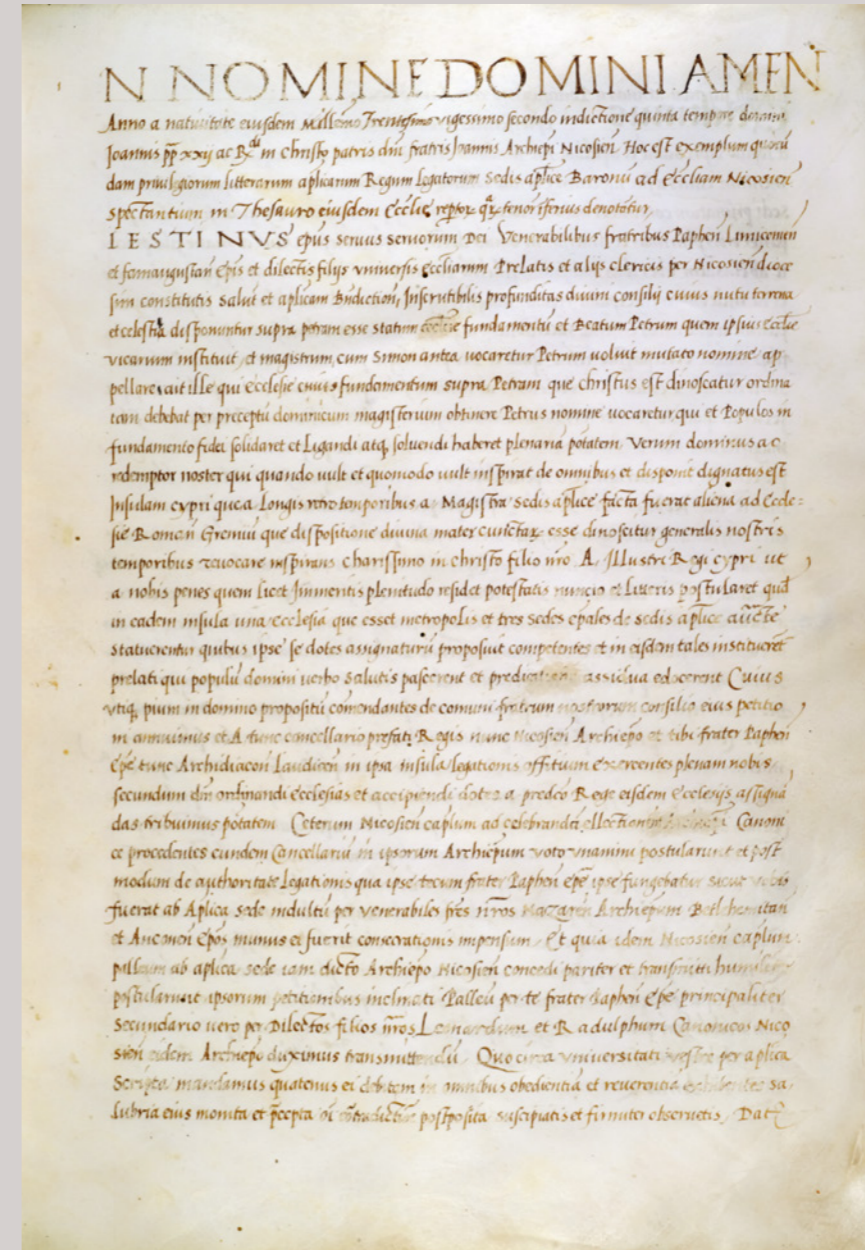 N NOMINE DOMINI AMEN
Anno a natiuitate eiusdem Millesimo Trentesimo vigessimo secondo indictione quinta tempore domini
Joannis pp xxij ac R^di in christo patris dni fratris Joannis Archiepi Nicosien Hoc est exemplum quorū
dam priuilegiorum litterarum aplicarum Regum Legatorum Sedis aplice Baronū ad Eccliam Nicosien
spectantium in Thesauro eiusdem Ecclie tenor inferius denotatur
LESTINVS epus seruus seruorum Dei Venerabilibus fratribus Paphen Limicenun
et famaugustan Epis et dilectis filijs vniuersis Eccliarum Prelatis et alijs clericis per Nicosien dioce
sim constitutis Salut et aplicam Bndiction, Inscrutibilis profunditas diuini consilij cuius nutu terrena
et celestia disponuntur supra petram esse statim fundamentū et Beatum Petrum quem ipsius Ecclie
vicarium instituit et magistrum cum Simon antea uocaretur Petrum uoluit mutato nomine ap
pellare vait ille qui Ecclesie cuius fundamentum supra Petram que christus est dinoscatur ordina
tam debebat per preceptū dominicum magisterium obtinere Petrus nomine uocaretur qui et Populos in
fundamento fidei solidaret et Ligandi atq, soluendi haberet plenariā potatem Verum dominus ac
redemptor noster qui quando uult et quomodo uult inspirat de omnibus et disponit dignatus est
Insulam cypri que a Longis retro temporibus a Magistra Sedis aplice facta fuerat aliena ad Eccle=
sie Roman Gremiū que dispositione diuina mater cunctar esse dinoscitur generalis nostris
temporibus reuocare inspirans charissimo in christo filio nro A. Illustri Regi cypri ut
a nobis penes quem licet Immeritis plenitudo residet potestatis nuncio et Litteris postularet quod
in eadem insula una ecclesia que esset metropolis et tres sedes epales de sedis aplice aucte
statuerentur quibus ipse se dotes assignaturū proposuit competentes et in eisdem tales institueret
prelati qui populū domini uerbo salutis pascerent et assidua edocerent Cuius
vtiq, pium in domino propositū comendantes de comuni fratrum nostrorum consilio eius petitio
ni annuimus et A tunc cancellario prefati Regis nunc Nicosien Archiepo et tibi frater Paphen
Epe tunc Archidiacon Laudicen in ipsa insula legationis offitium exercentes plenam nobis
secundum dm ordinandi ecclesias et accipiendi dotes a predco Rege eisdem ecclesijs assigna
das tribuimus potatem Ceterum Nicosien caplum ad celebrandā ellectionem Archiepi Canoni
ce procedentes eundem Cancellariū in ipsorum Archiepum voto vnanimi postularunt et post
modum de authoritate Legationis qua ipse tecum frater Paphen epe ipse fungebatur sicut vobis
fuerat ab Aplica sede indultū per venerabiles fres nros Nazaren Archiepum Betlhemitan
et Anconen Epos munus ei fuerit consecrationis impensum Et quia idem Nicosien caplum
palleum ab aplica sede iam dicto Archiepo Nicosien concedi pariter et transmitti humiliter
postularunt ipsorum petitionibus inclinati Palleū per te frater Paphen Epe principaliter
Secundario uero per Dilectos filios nros Leonardum et Radulphum Canonicos Nico
sien eidem Archiepo duximus transmittendū Quocirca vniuersitati vestre per aplica
Scripta mandamus quatenus ei debitam in omnibus obedientiā et reuerentiā exhibentes sa
lubria eius monita et pcepta postposita suscipiatis et firmiter obseruetis Dat